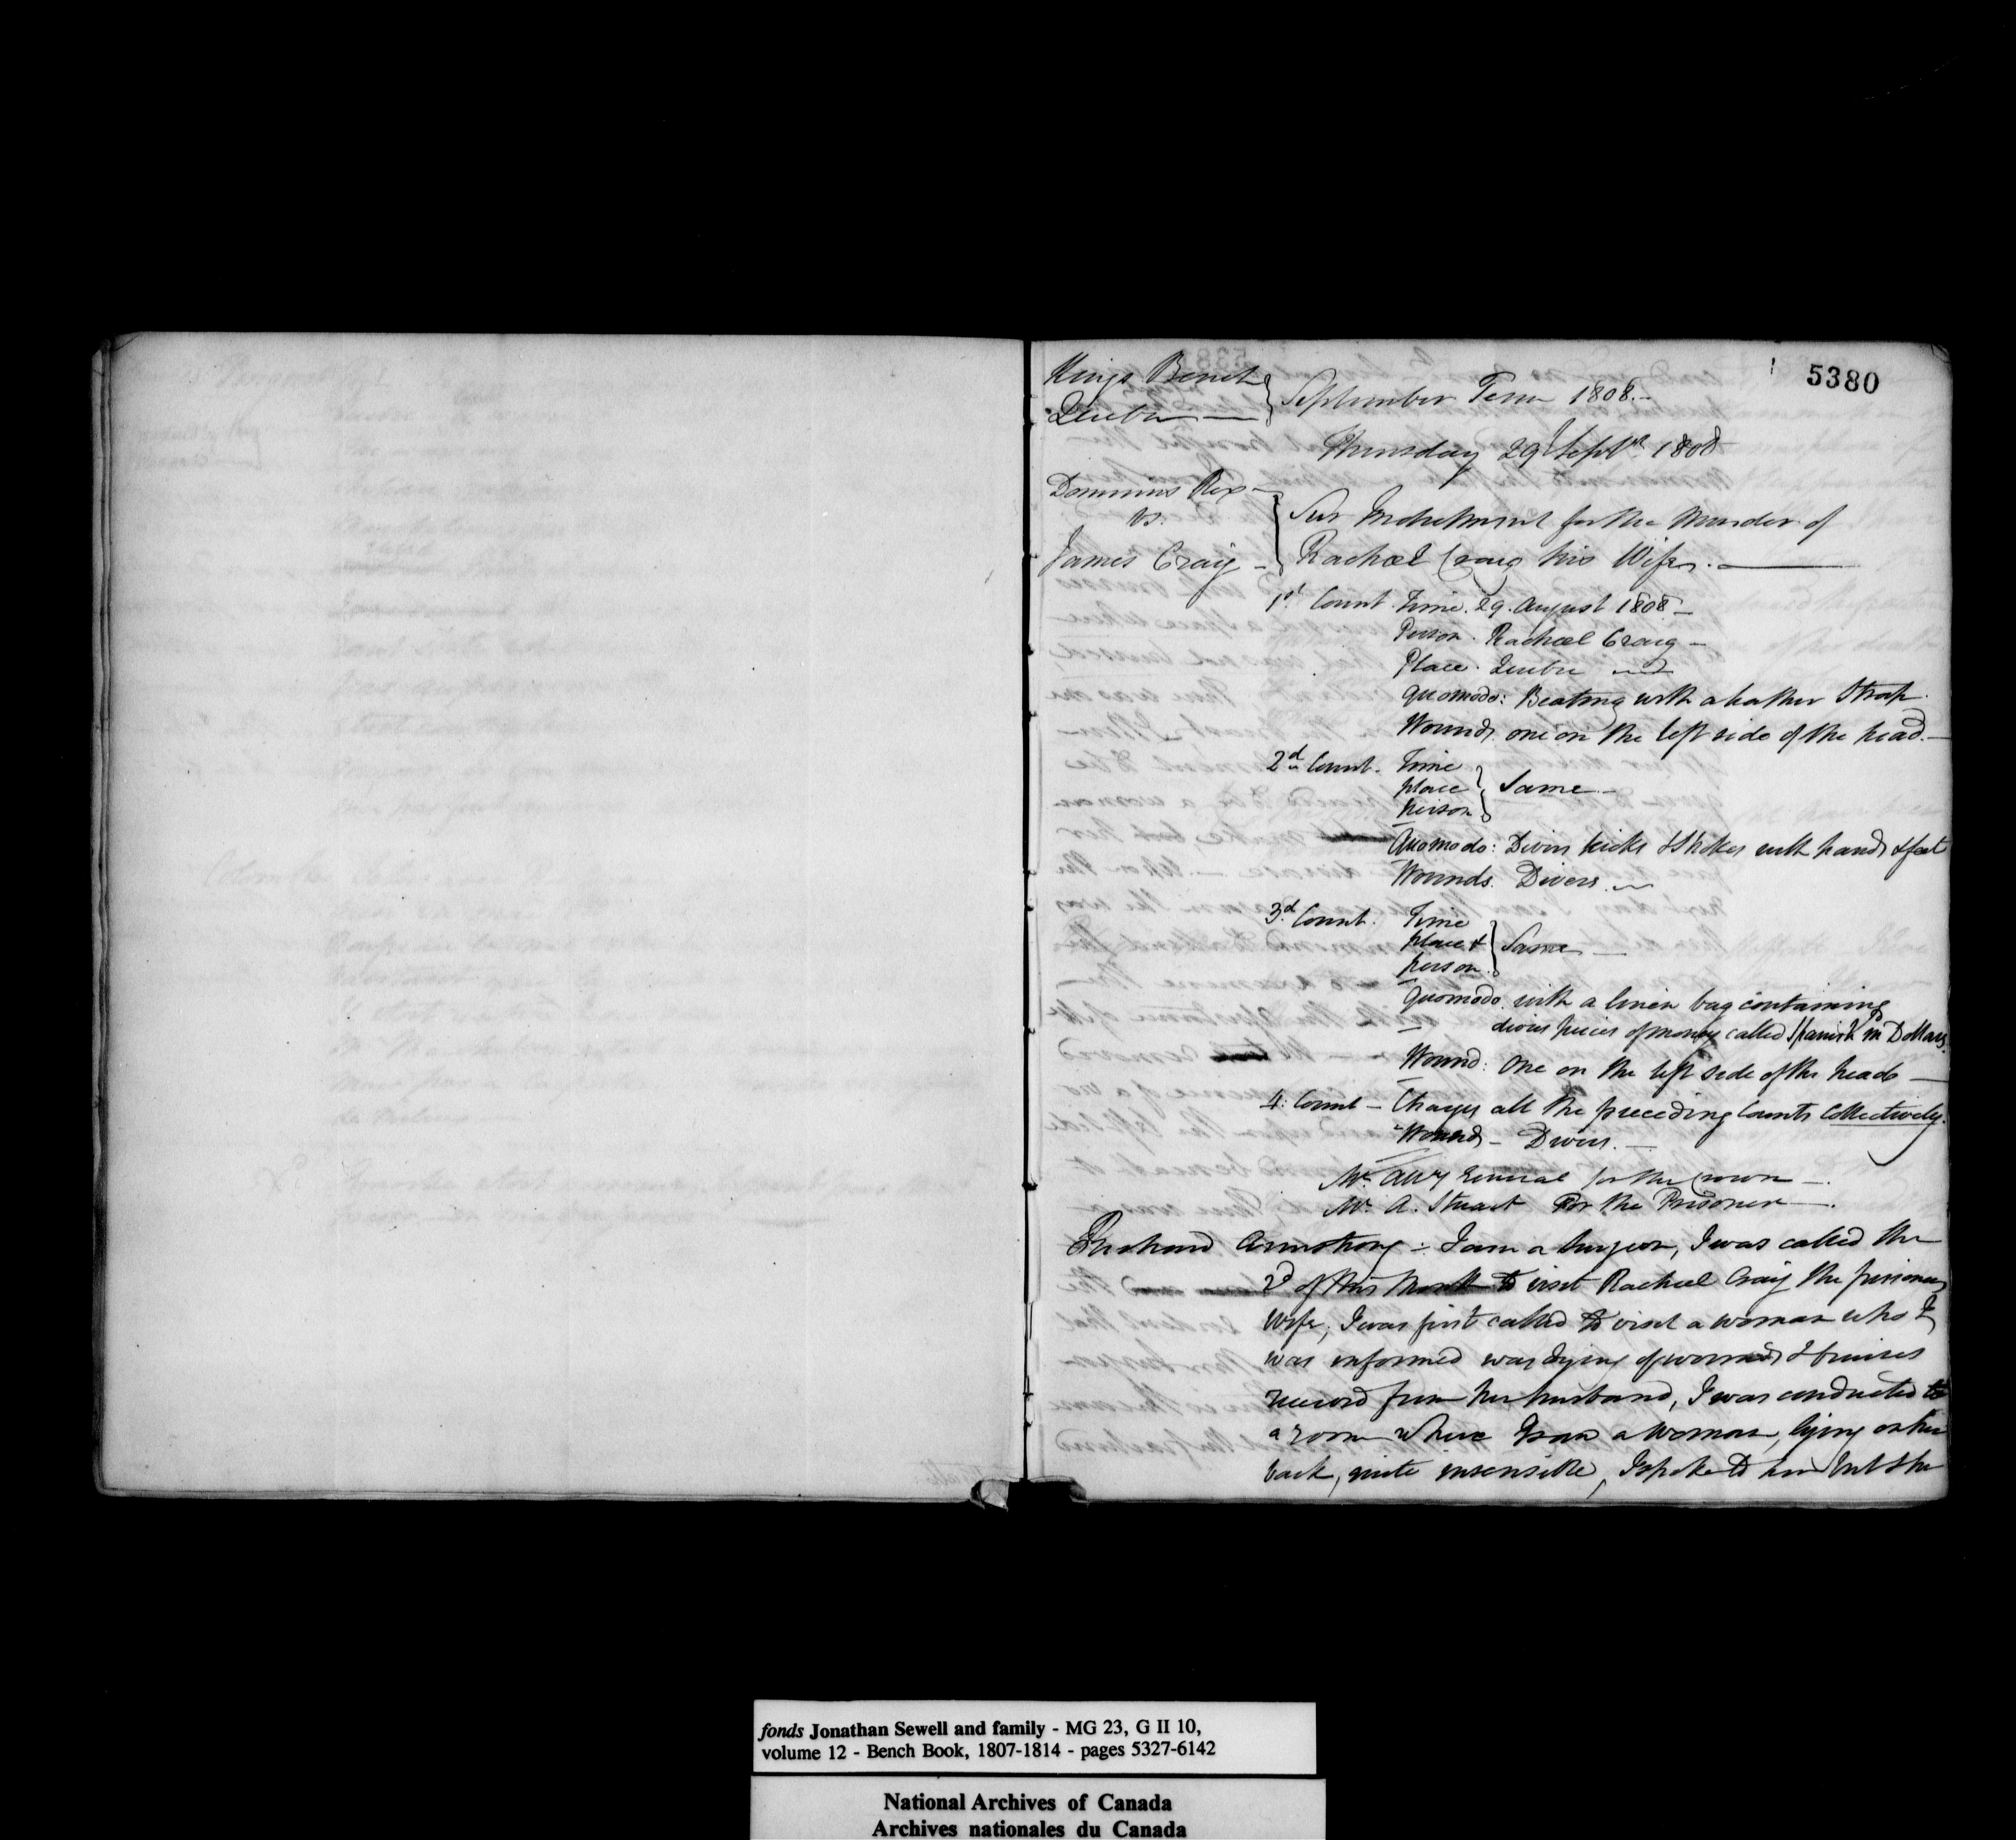 5380
Kings Bench
Quebec
September Term 1808.
Thursday 29 Septr. 1808
Dominus Rex
vs.
James Craig
Sur Indictment for the Murder of
Rachael Craig his Wife.
1st Count. Time. 29. August 1808
Person. Rachael Craig
Place. Quebec
Quomodo: Beating with a leather Strap.
Wounds one on the left side of the head.
2d Count. Time
place
person
Same
Quomodo: Divers kicks & Strokes with hands & feet
Wounds. Divers.
3d Count. Time
place &
person
Same
Quomodo with a linen bag containing
divers pieces of money called Spanish Dollars.
Wound: One on the left side of the head
4: Count - Charges all the preceding Counts Collectively.
Wounds - Divers.
Mr. Atty General for the Crown
Mr. A. Stuart For the Prisoner
Richard Armstrong: I am a Surgeon, I was called the
2d of this Month to visit Rachael Craig the prisoners
Wife; I was first called to visit a woman who I
was informed was dying of wounds & bruises
received from her husband, I was conducted to
a room where I saw a woman, lying on her
back, quite insensible, I spoke to her but she
fonds Jonathan Sewell and family - MG 23, G II 10,
volume 12 - Bench Book, 1807-1814 - pages 5327-6142
National Archives of Canada
Archives nationales du Canada